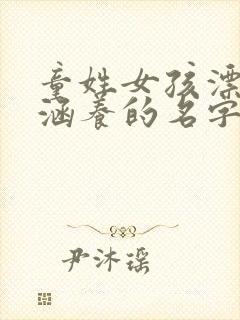 童姓女孩漂
涵养的名字
尹沐瑶